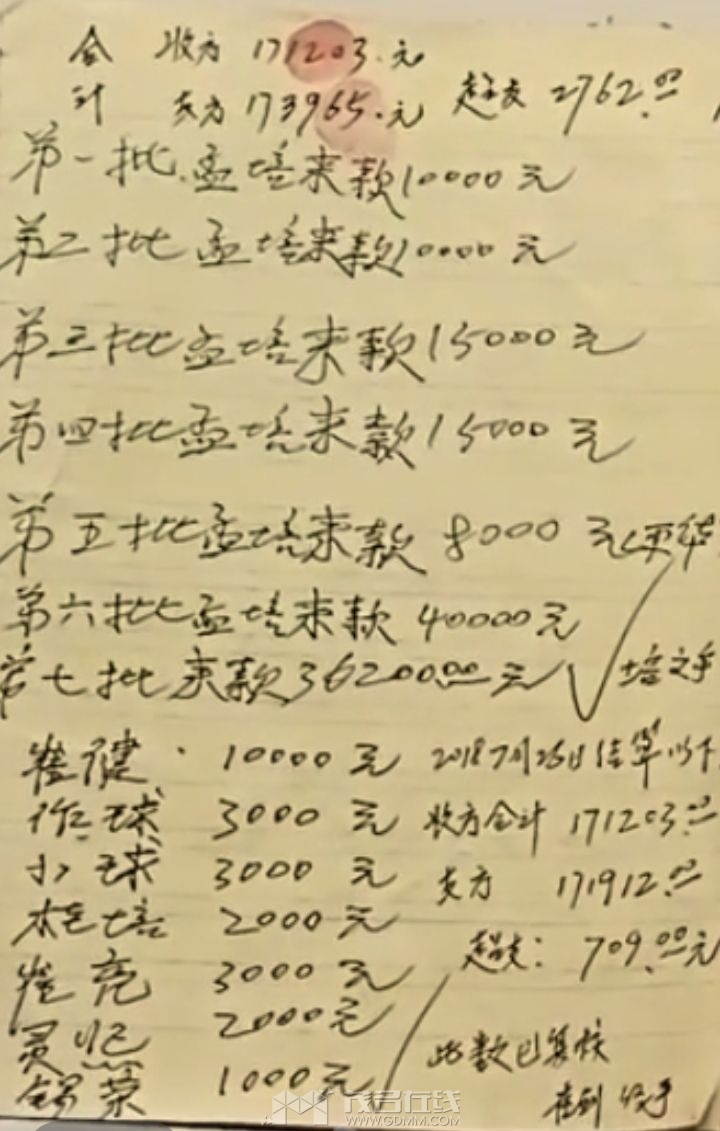 合 收方 171203.元
计 支方 173965.元 超支 2762.00
第一批.孟培来款10000元
第二批孟培来款10000元
第三批孟培来款15000元
第四批孟培来款15000元
第五批孟培来款 8000元
第六批孟培来款 40000元
第七批来款36200.00元
崔健. 10000元 2018 7月26日结算以下
作球 3000元 收方合计 171203.00
小球 3000元 支方 171912.00
桂培 2000元
崔亮 3000元 超支: 709.00元
灵熙 2000元
锡荣 1000元 此数已复核
茂名在线
WWW.GDMM.COM